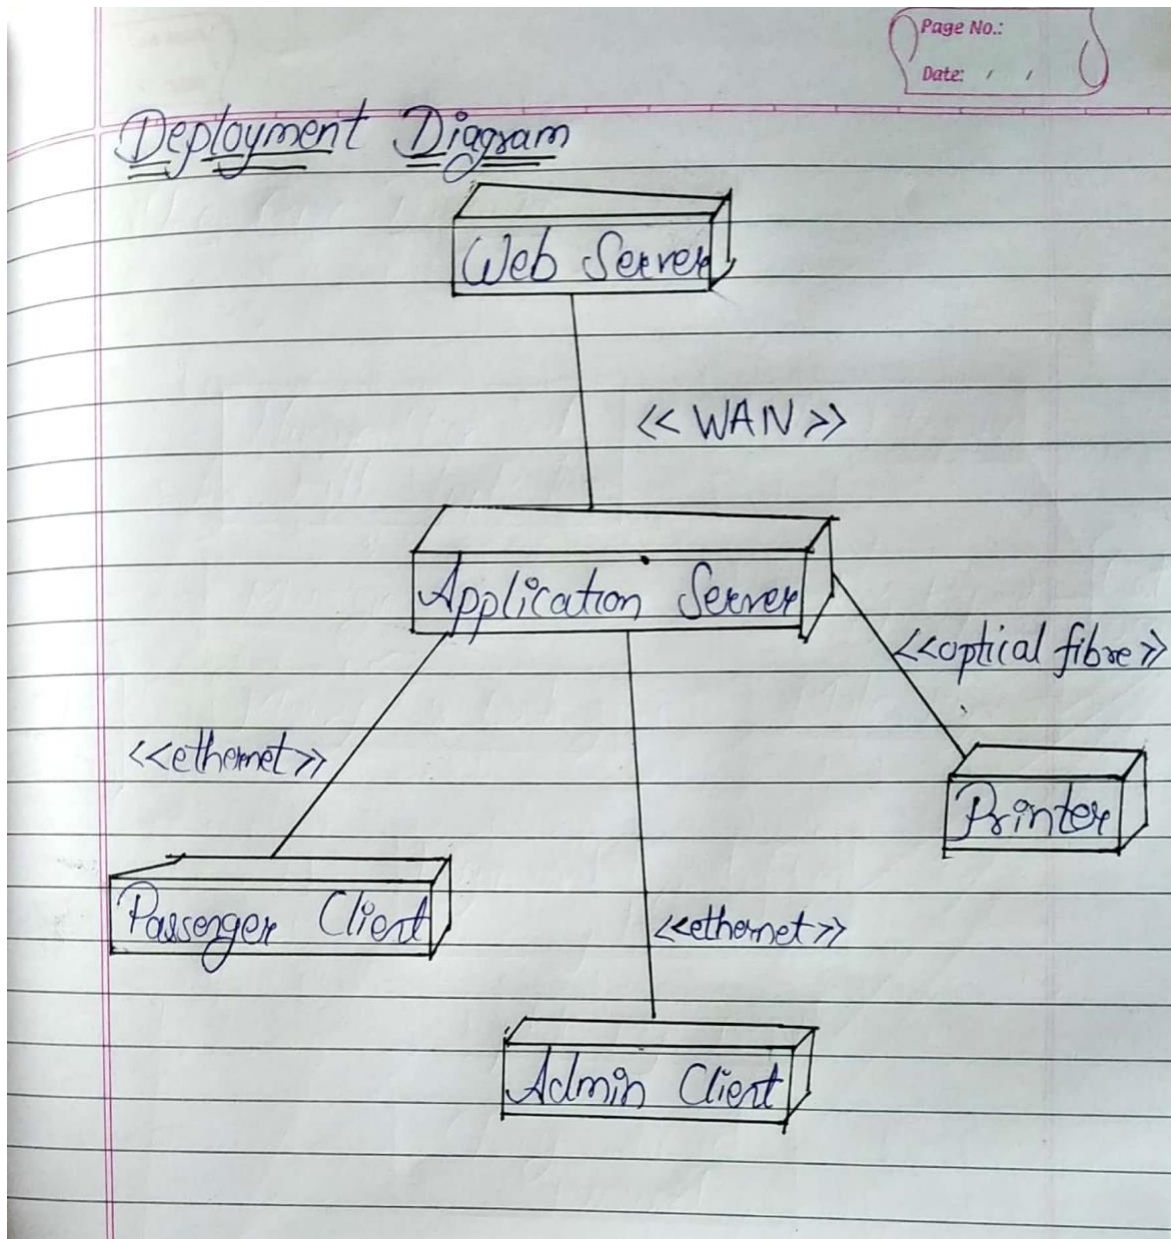 Page No.:
Date: / /
Deployment Diagram
Web Server
<< WAN >>
Application Server
<<optical fibre>>
<<ethernet>>
Printer
Passenger Client
<<ethernet>>
Admin Client